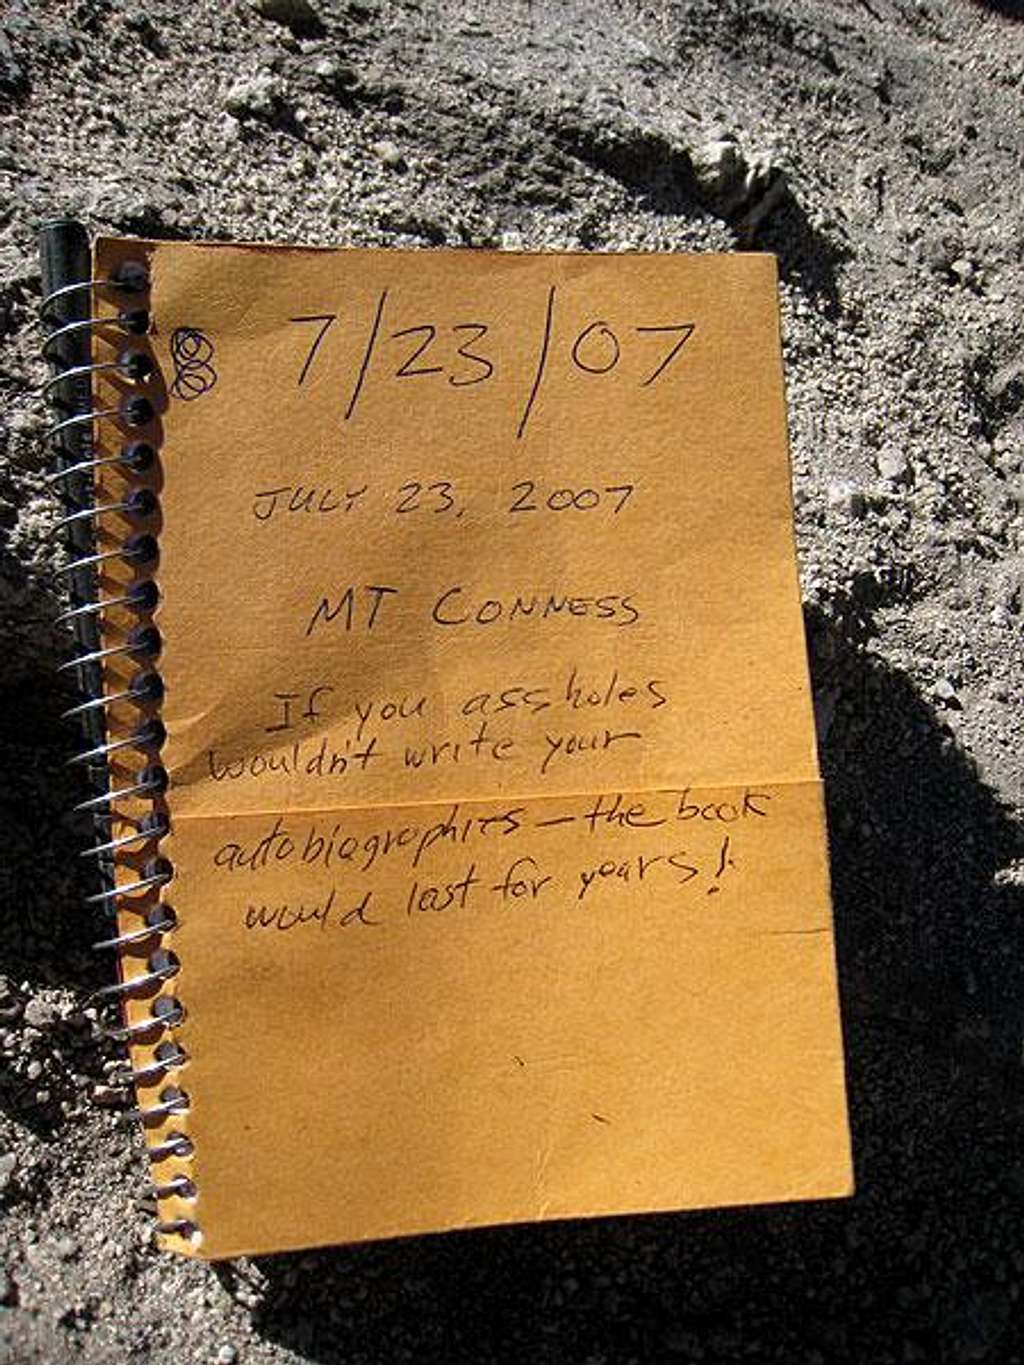 7/23/07
JULY 23, 2007
MT CONNESS
If you assholes
wouldn't write your
autobiographies — the book
would last for years!